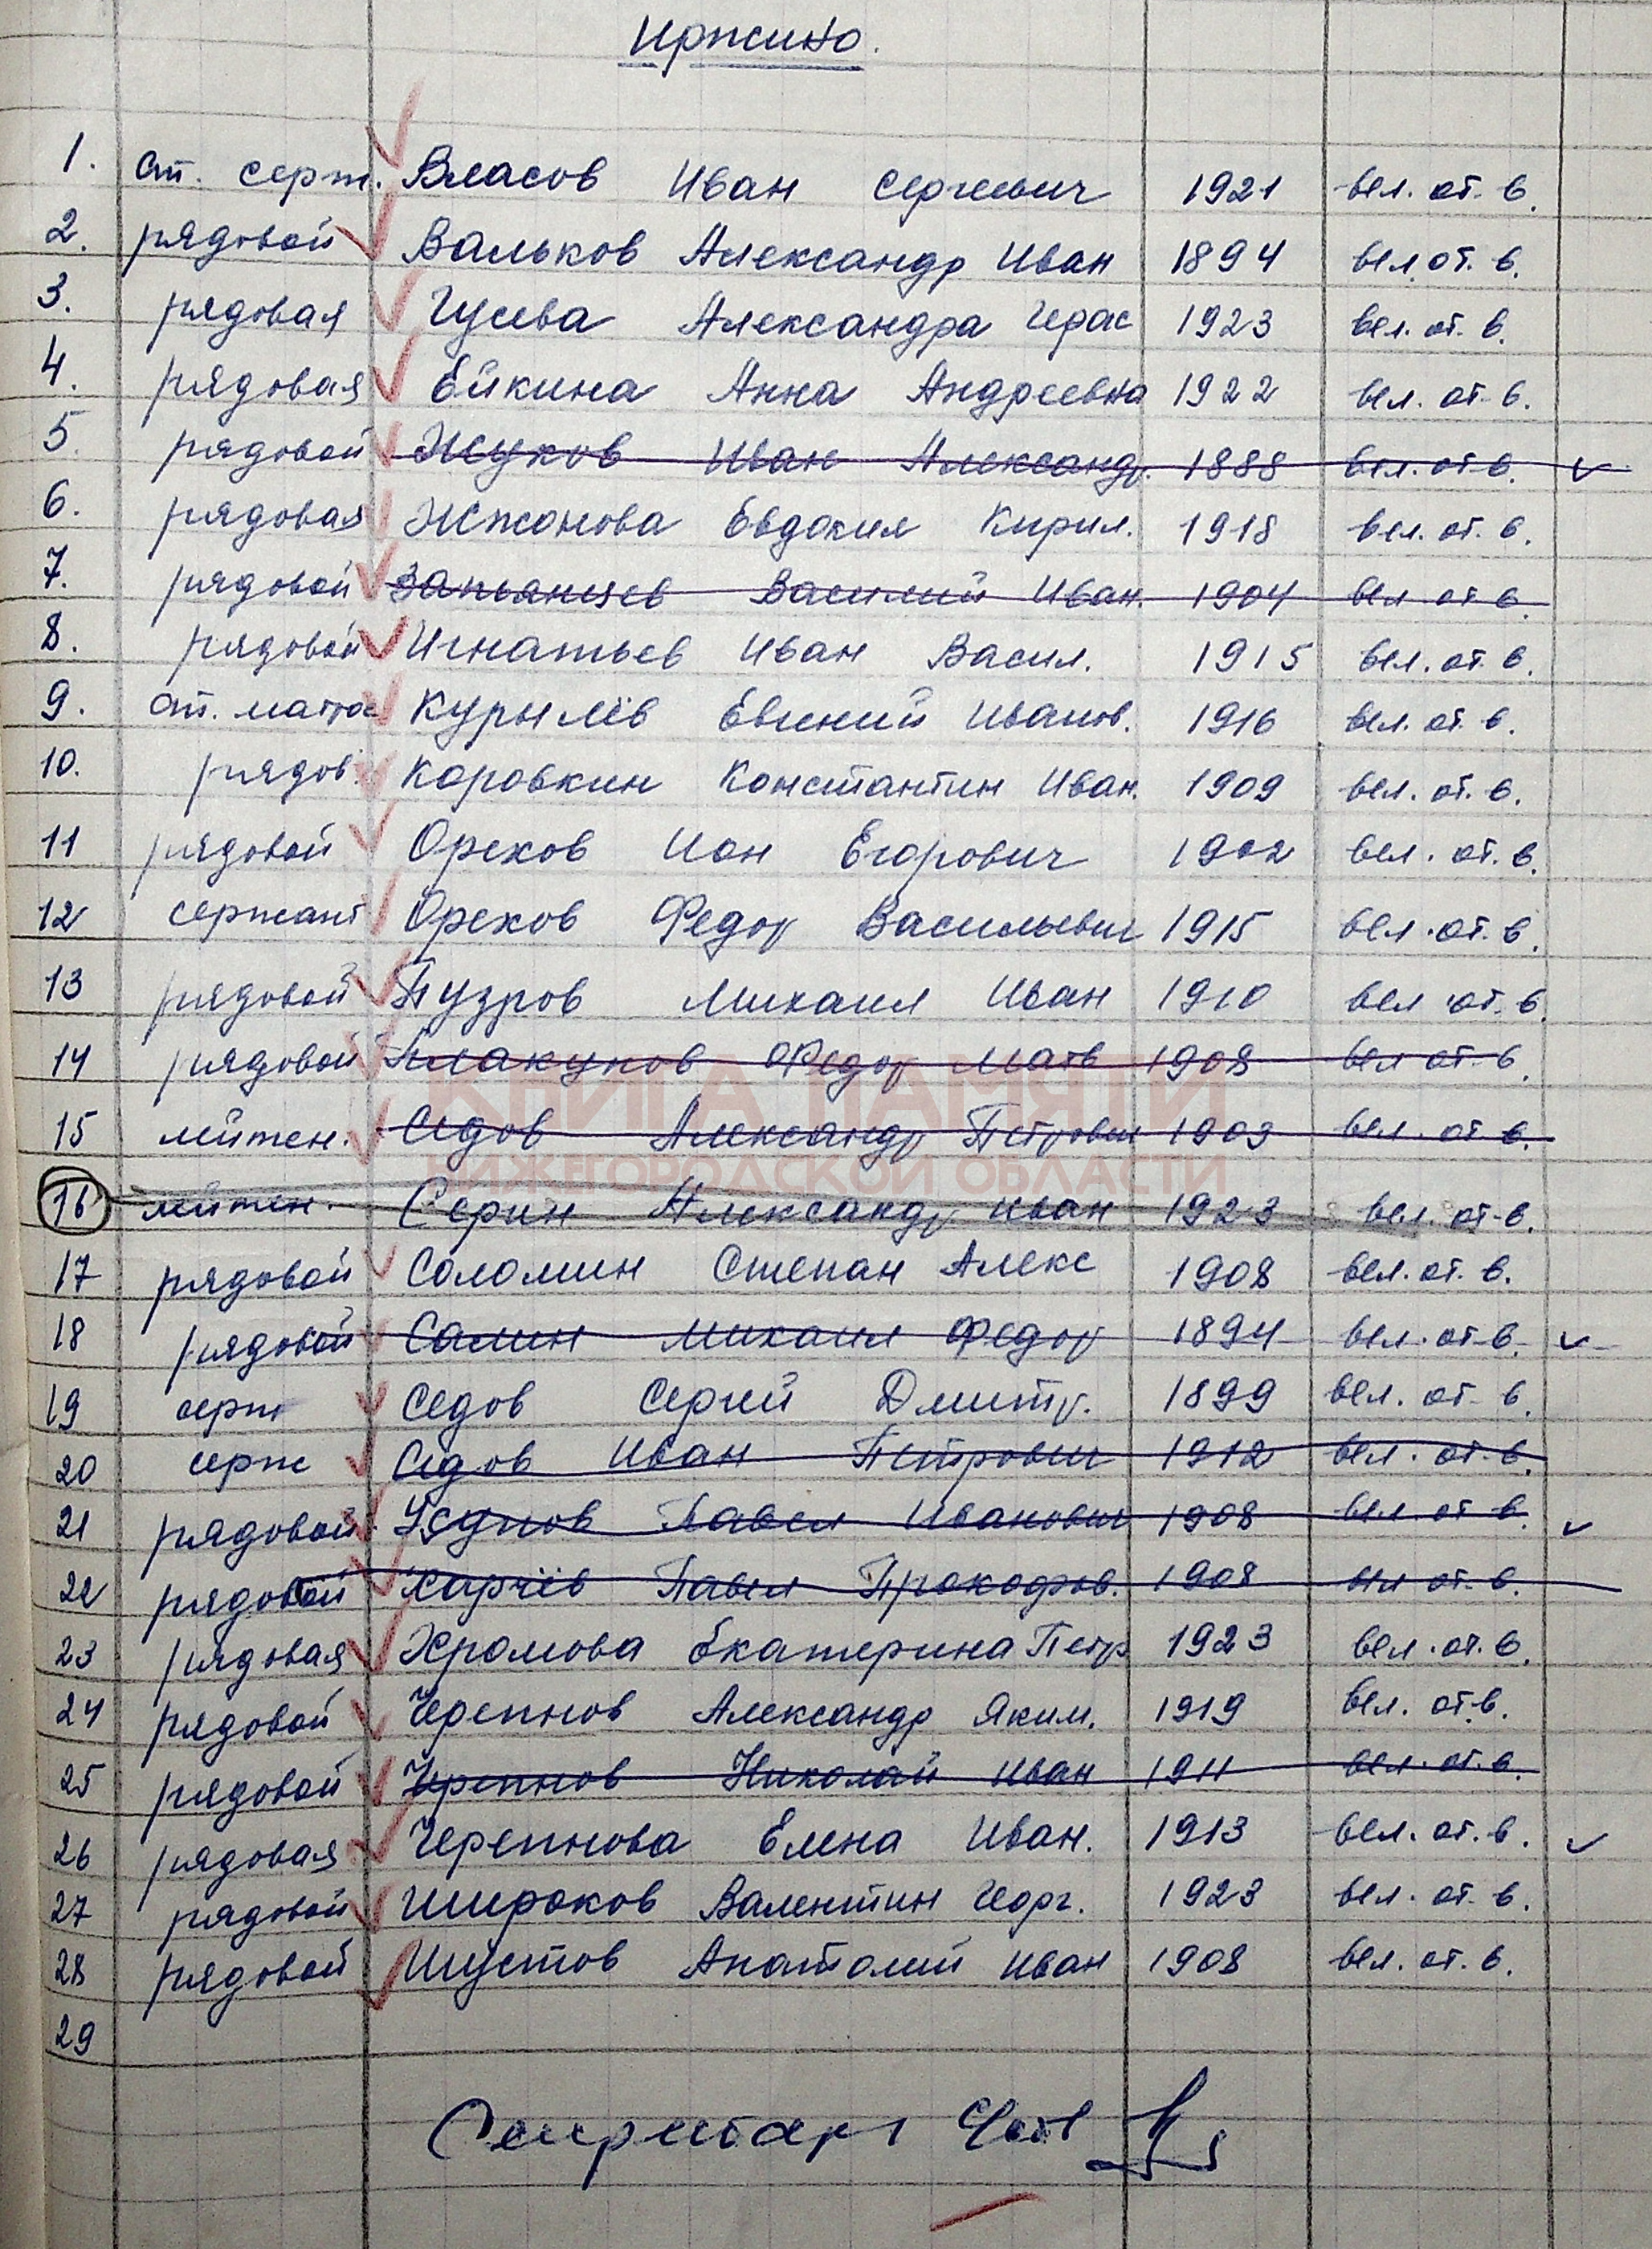 Иржино.
1. ст. серж. Власов Иван Сергеевич 1921 вел. от. в.
2. рядовой Вальков Александр Иван 1894 вел. от. в.
3. рядовая Гусева Александра Герас 1923 вел. от. в.
4. рядовая Ейкина Анна Андреевна 1922 вел. от. в.
5. рядовой Жуков Иван Александр. 1888 вел. от. в.
6. рядовая Жжонова Евдокия Кирил. 1918 вел. от. в.
7. рядовой Иван. Василий 1904 вел. от. в.
8. рядовой Игнатьев Иван Васил. 1915 вел. от. в.
9. ст. матрос Курылёв Евгений Иванов. 1916 вел. от. в.
10. рядов. Коровкин Константин Иван. 1909 вел. от. в.
11 рядовой Орехов Иван Егорович 1902 вел. от. в.
12 сержант Орехов Федор Васильевич 1915 вел. от. в.
13 рядовой Пузров Михаил Иван 1910 вел. от. в.
14 рядовой Федор Матв 1908 вел. от. в.
КНИГА ПАМЯТИ
15 лейтен. Седов Александр Петрович 1903 вел. от. в.
НИЖЕГОРОДСКОЙ ОБЛАСТИ
16 лейтен. Серин Александр Иван 1923 вел. от. в.
17 рядовой Соломин Степан Алекс 1908 вел. от. в.
18 рядовой Салин Михаил Федор 1894 вел. от. в.
19 серж Седов Сергей Дмитр. 1899 вел. от. в.
20 серж Седов Иван Петрович 1912 вел. от. в.
21 рядовой Павел Иванович 1908 вел. от. в.
22 рядовой Харчёв Павел Прокофов. 1908 вел. от. в.
23 рядовая Хромова Екатерина Петр 1923 вел. от. в.
24 рядовой Черепнов Александр Яким. 1919 вел. от. в.
25 рядовой Черепнов Николай Иван 1911 вел. от. в.
26 рядовая Черепнова Елена Иван. 1913 вел. от. в.
27 рядовой Широков Валентин Георг. 1923 вел. от. в.
28 рядовой Шустов Анатолий Иван 1908 вел. от. в.
29
Секретарь